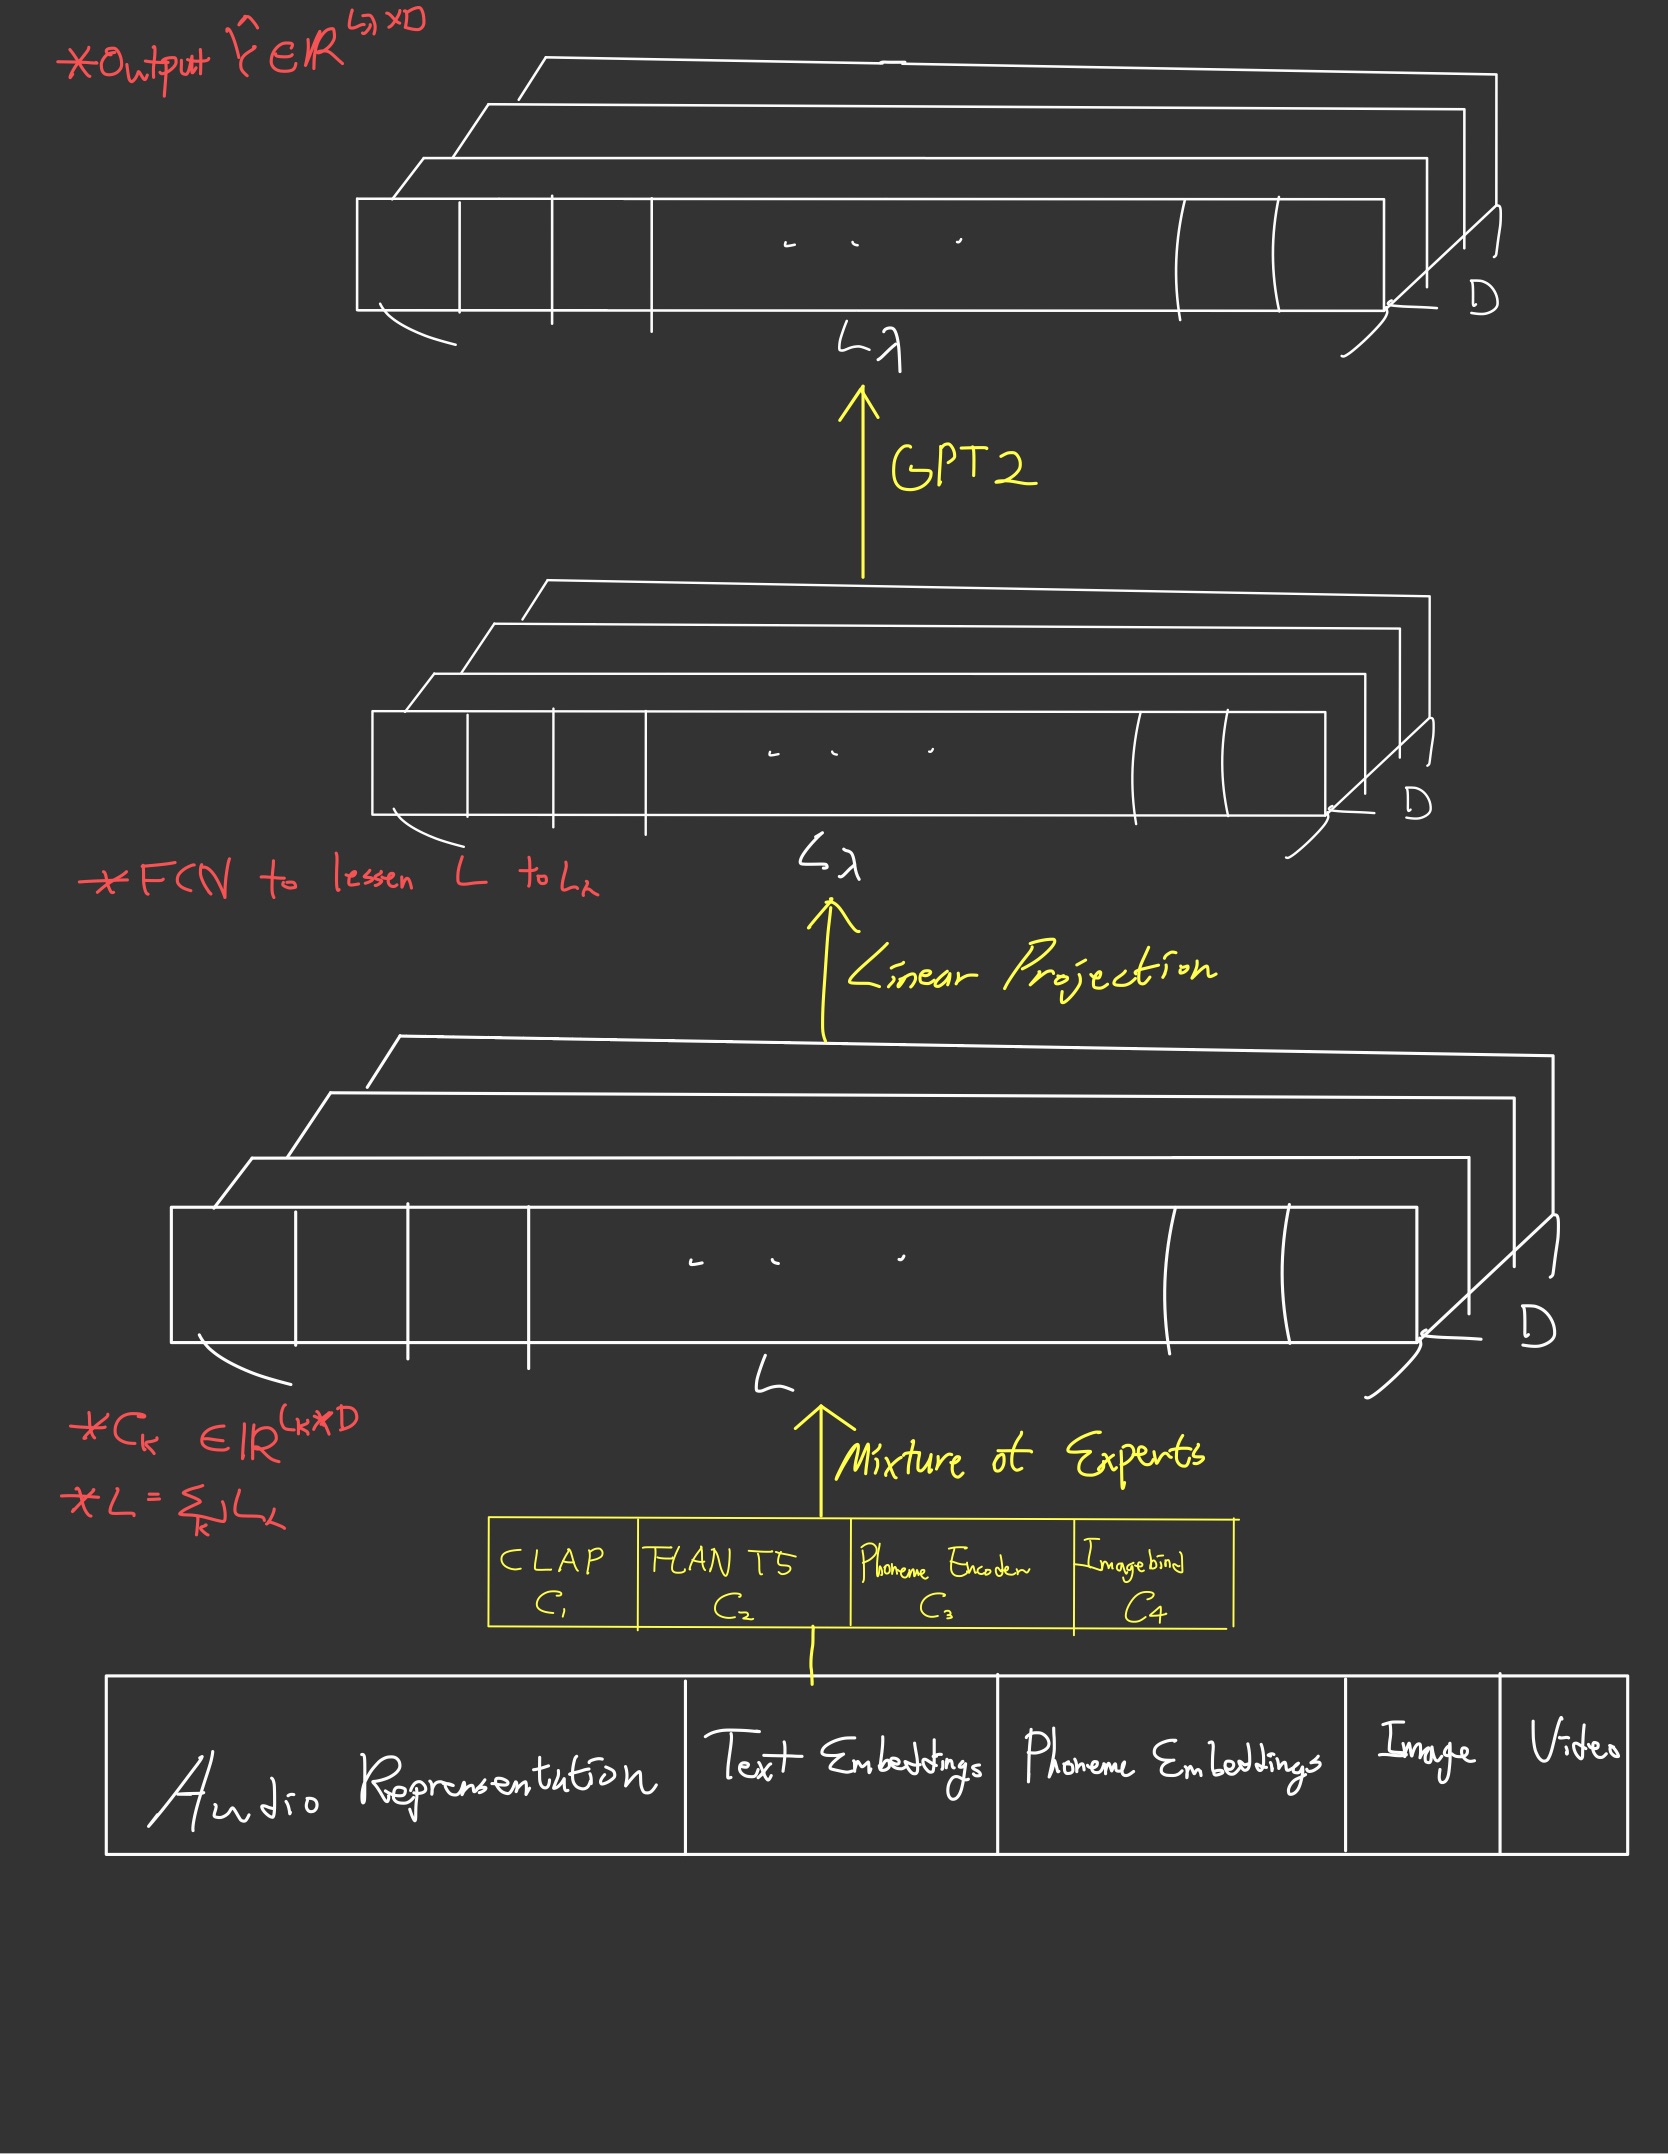 *Output Ŷ ∈ R^{Lλ×D}
D
Lλ
GPT2
D
Lλ
*FCN to lessen L to Lλ
Linear Projection
D
L
*C_k ∈ ℝ^{L_k×D}
Mixture of Experts
*L = Σ_k L_k
CLAP FLAN T5 Phoneme Encoder Imagebind
C₁ C₂ C₃ C₄
Audio Representation Text Embeddings Phoneme Embeddings Image Video